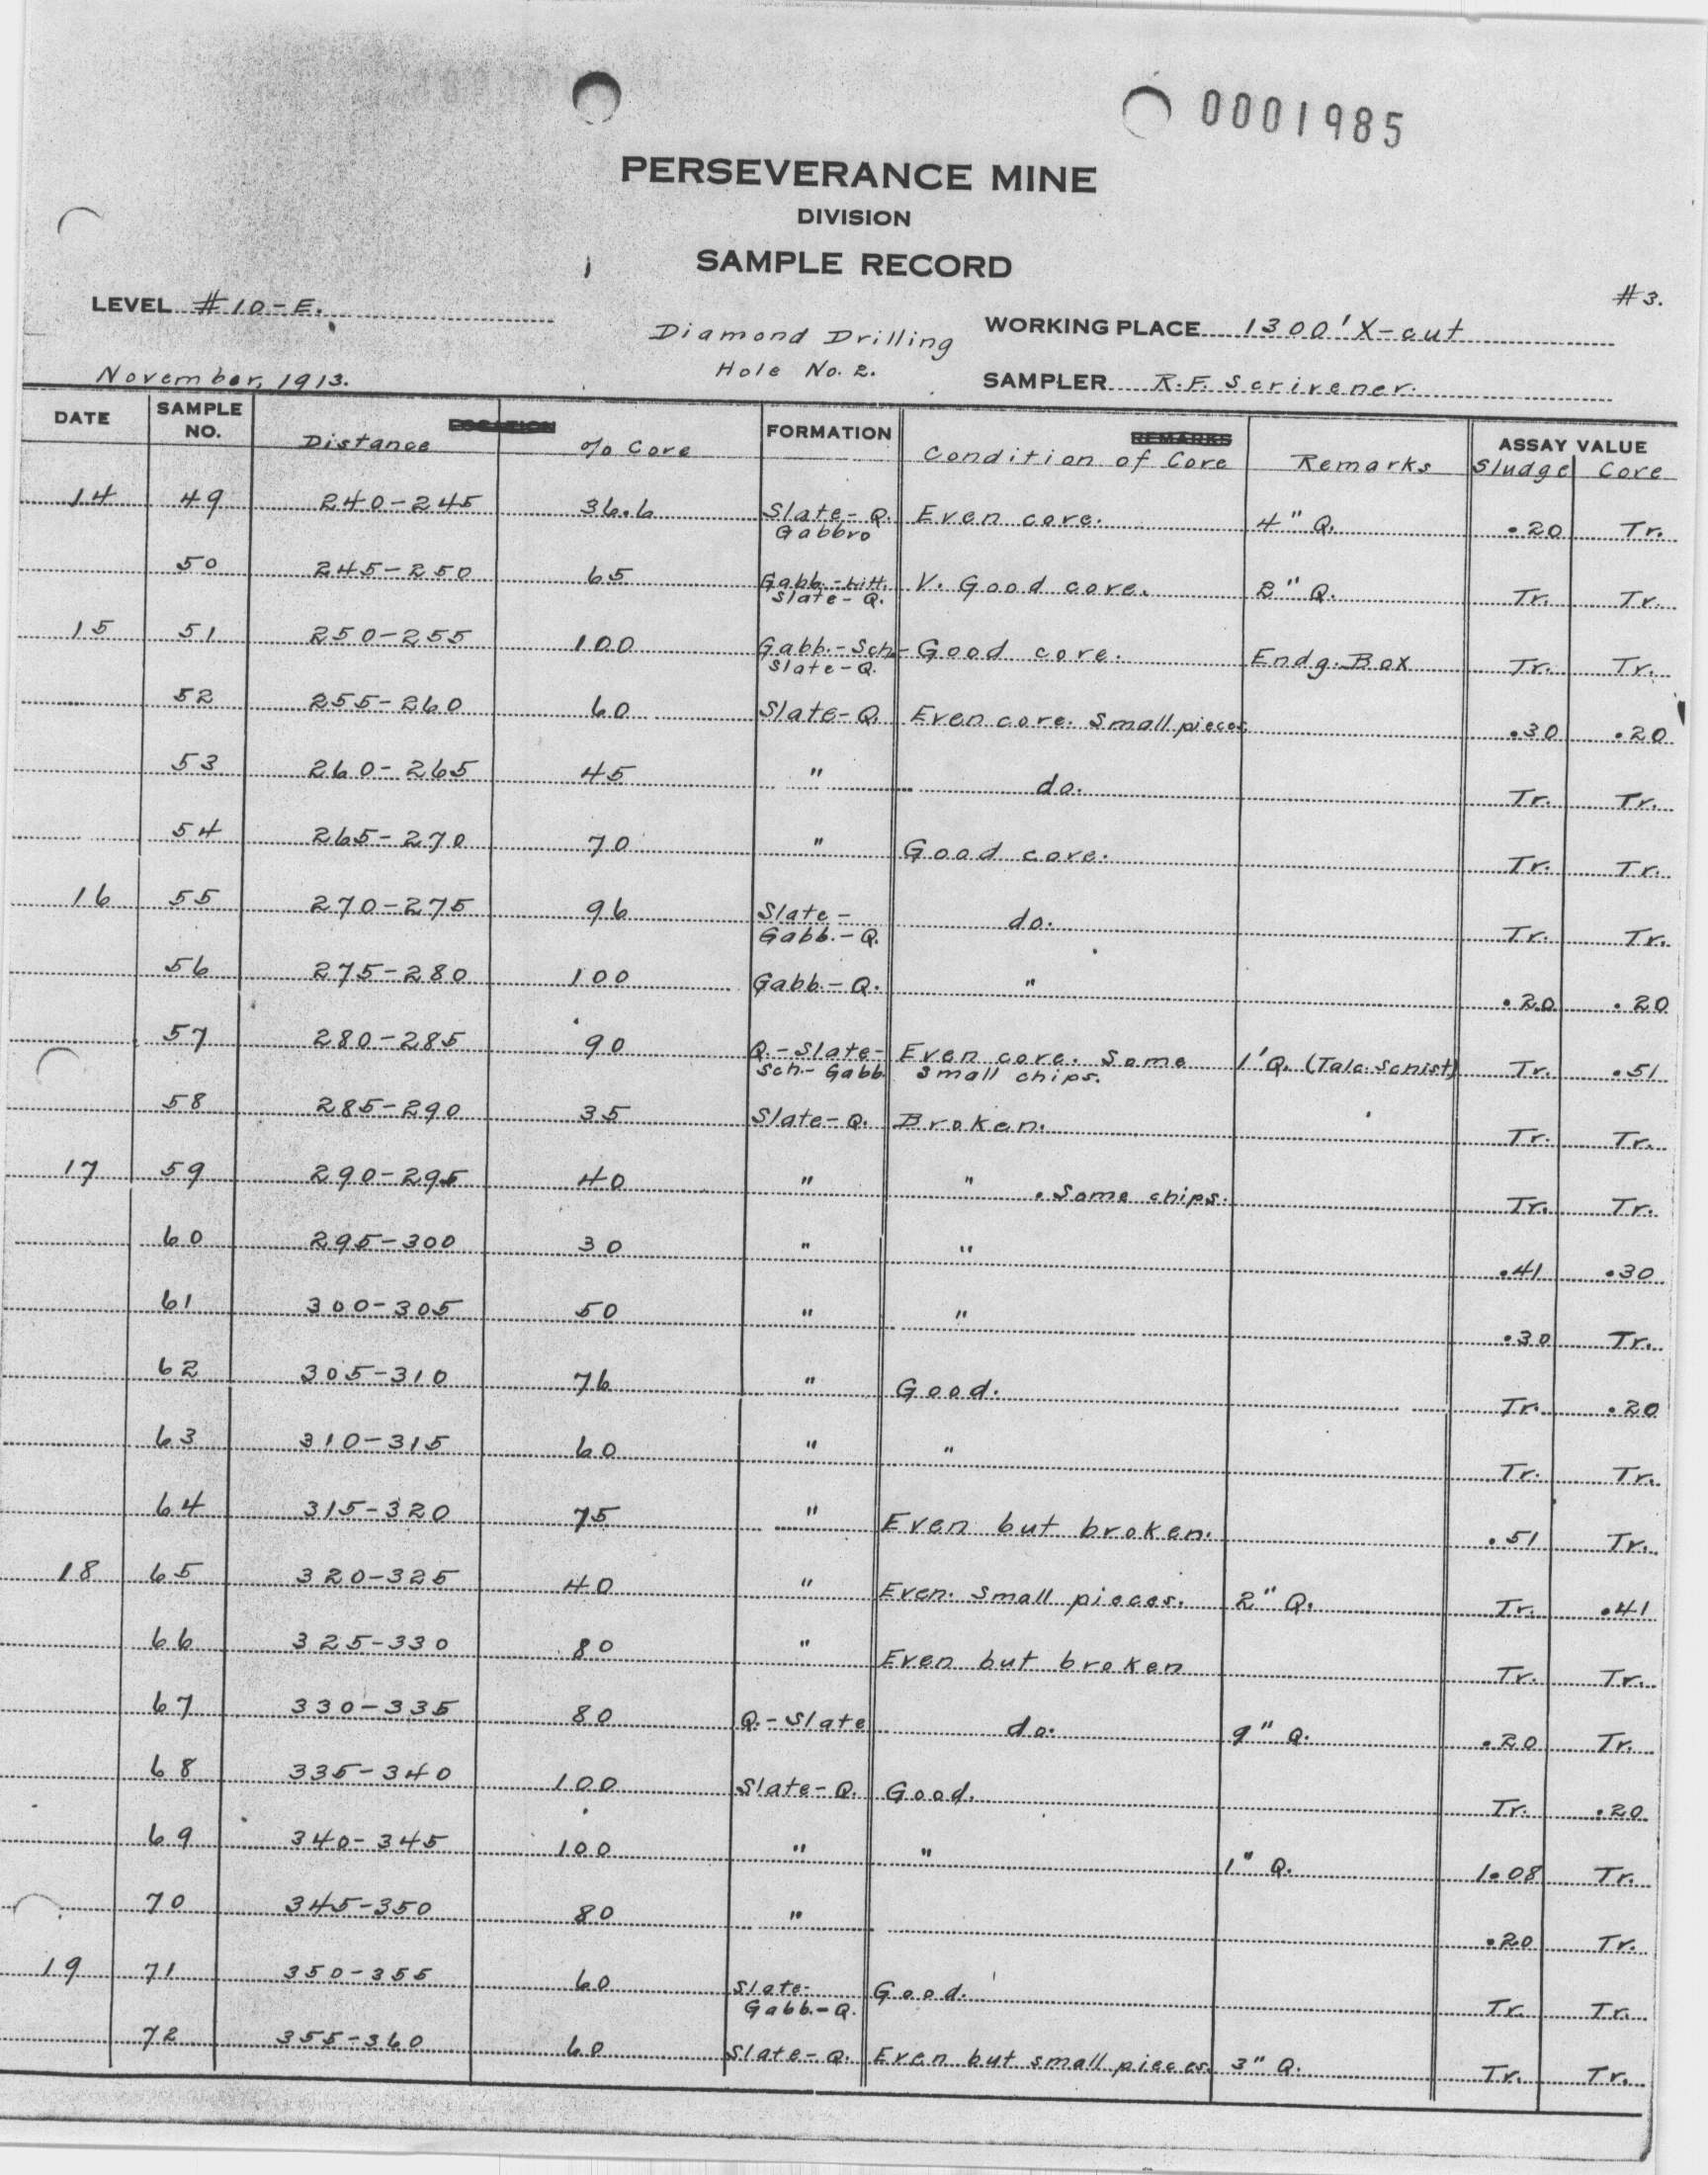 0001985
PERSEVERANCE MINE
DIVISION
SAMPLE RECORD
#3.
LEVEL #10-E.
Diamond Drilling WORKING PLACE 1300' X-cut
Hole No. 2.
November, 1913. SAMPLER R.F. Scrivener.
DATE SAMPLE NO. LOCATION FORMATION REMARKS ASSAY VALUE
Distance % Core Condition of Core Remarks Sludge Core
14 49 240-245 36.6 Slate-Q. Even core. 4" Q. .20 Tr.
Gabbro
50 245-250 65 Gabb.- V. Good core. 2" Q. Tr. Tr.
Slate-Q.
15 51 250-255 100 Gabb.-Sch- Good core. Endg. Box Tr. Tr.
Slate-Q.
52 255-260 60 Slate-Q. Even core. Small pieces. .30 .20
53 260-265 45 " do. Tr. Tr.
54 265-270 70 " Good core. Tr. Tr.
16 55 270-275 96 Slate- do. Tr. Tr.
Gabb.-Q.
56 275-280 100 Gabb.-Q. " .20 .20
57 280-285 90 Q.-Slate- Even core. Some 1' Q. (Talc. Schist) Tr. .51
Sch.-Gabb. small chips.
58 285-290 35 Slate-Q. Broken. Tr. Tr.
17 59 290-295 40 " " . Some chips. Tr. Tr.
60 295-300 30 " " .41 .30
61 300-305 50 " " .30 Tr.
62 305-310 76 " Good. Tr. .20
63 310-315 60 " " Tr. Tr.
64 315-320 75 " Even but broken. .51 Tr.
18 65 320-325 40 " Even. Small pieces. 2" Q. Tr. .41
66 325-330 80 " Even but broken Tr. Tr.
67 330-335 80 Q.-Slate do. 9" Q. .20 Tr.
68 335-340 100 Slate-Q. Good. Tr. .20
69 340-345 100 " " 1" Q. 1.08 Tr.
70 345-350 80 " .20 Tr.
19 71 350-355 60 Slate- Good. Tr. Tr.
Gabb.-Q.
72 355-360 60 Slate-Q. Even but small pieces. 3" Q. Tr. Tr.